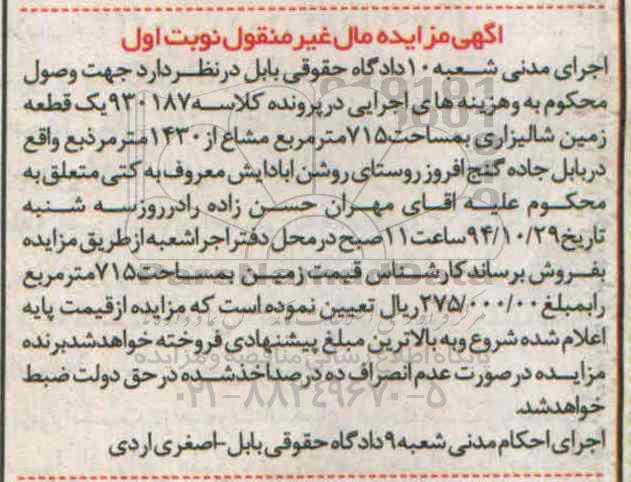 آگهی مزایده مال غیر منقول نوبت اول
اجرای مدنی شعبه ۱۰ دادگاه حقوقی بابل در نظر دارد جهت وصول
محکوم به و هزینه های اجرایی در پرونده کلاسه ۹۳۰۱۸۷ یک قطعه
زمین شالیزاری بمساحت ۷۱۵ متر مربع مشاع از ۱۴۳۰ متر مربع واقع
در بابل جاده گنج افروز روستای روشن ابادایش معروف به کتی متعلق به
محکوم علیه اقای مهران حسن زاده را در روز سه شنبه
تاریخ ۹۴/۱۰/۲۹ ساعت ۱۱ صبح در محل دفتر اجرا شعبه از طریق مزایده
بفروش برساند کارشناس قیمت زمین بمساحت ۷۱۵ متر مربع
را بمبلغ ۲۷۵/۰۰۰/۰۰ ریال تعیین نموده است که مزایده از قیمت پایه
اعلام شده شروع و به بالاترین مبلغ پیشنهادی فروخته خواهد شد برنده
مزایده در صورت عدم انصراف ده درصد اخذ شده در حق دولت ضبط
خواهد شد.
اجرای احکام مدنی شعبه ۹ دادگاه حقوقی بابل-اصغری اردی
پایگاه اطلاع رسانی مناقصه و مزایده
۰۲۱-۸۸۳۴۹۶۷۰-۵